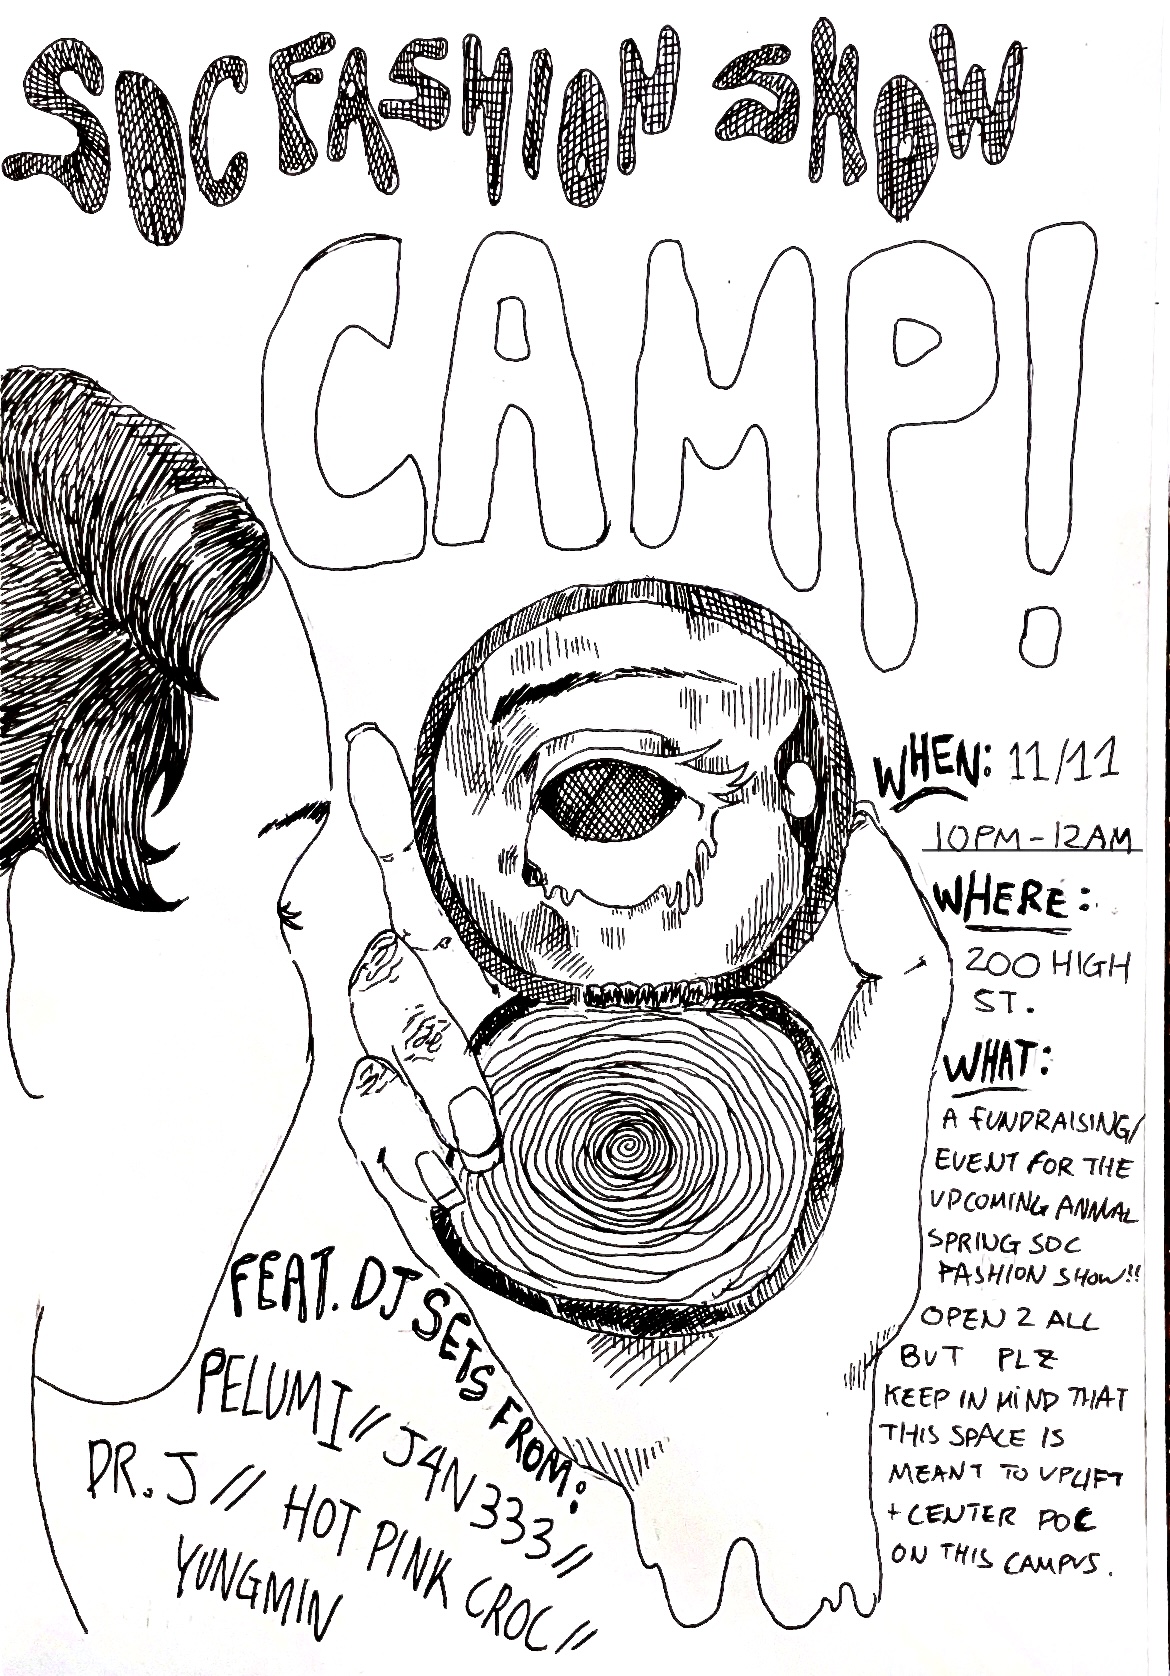 SOC FASHION SHOW
CAMP!
WHEN: 11/11
10PM-12AM
WHERE:
200 HIGH
ST.
WHAT:
A FUNDRAISING
EVENT FOR THE
UPCOMING ANNUAL
SPRING SOC
FASHION SHOW!!
OPEN 2 ALL
BUT PLZ
KEEP IN MIND THAT
THIS SPACE IS
MEANT TO UPLIFT
+ CENTER POC
ON THIS CAMPUS.
FEAT. DJ SETS FROM:
PELUMI // J4N333 //
DR. J // HOT PINK CROC //
YUNGMIN